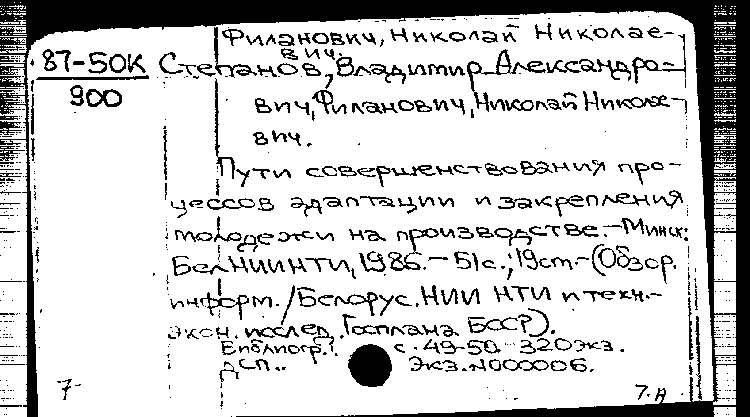 Филанович, Николай Николае-
вич.
87-50К Степанов, Владимир Александро-
900
вич, Филанович, Николай Николае-
вич.
Пути совершенствования про-
цессов адаптации и закрепления
молодежи на производстве.-Минск:
БелНИИНТИ, 1986.-51с.; 19см-(Обзор.
информ./Белорус. НИИ НТИ и техн.-
экон. исслед. Госплана БССР).
Библиогр.: с. 49-50. 320экз.
ДСП.. Экз.N000006.
7 7.А